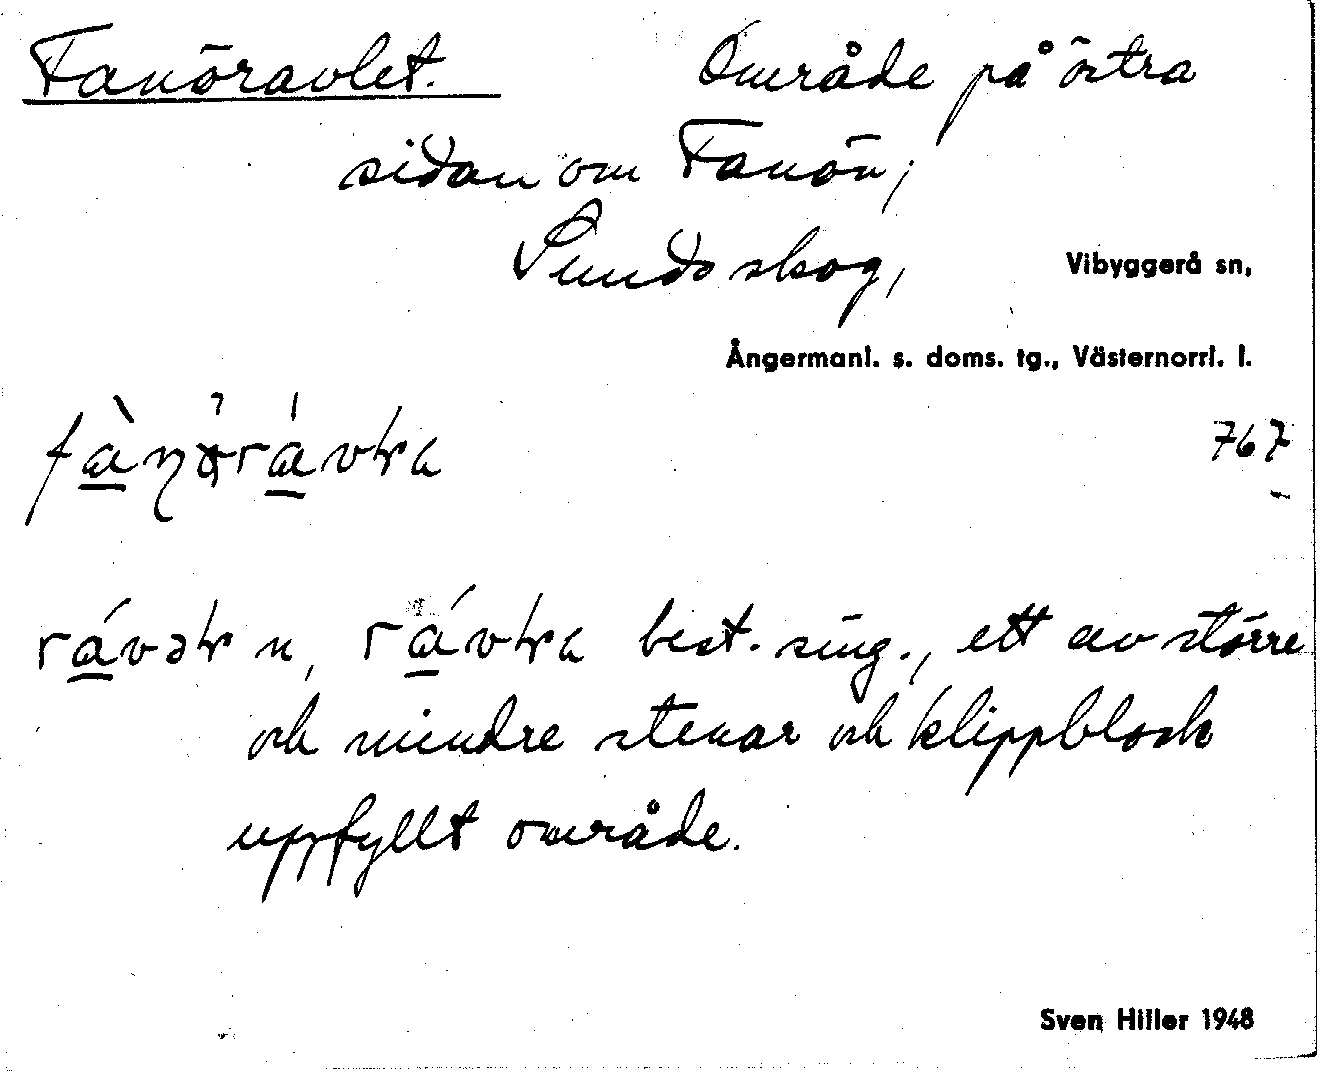 Fanöravlet. Område på östra
sidan om Fanön;
Sundsskog, Vibyggerå sn,
Ångermanl. s. doms. tg., Västernorrl. l.
767
best. sing., ett av större
och mindre stenar och klippblock
uppfyllt område.
Sven Hiller 1948